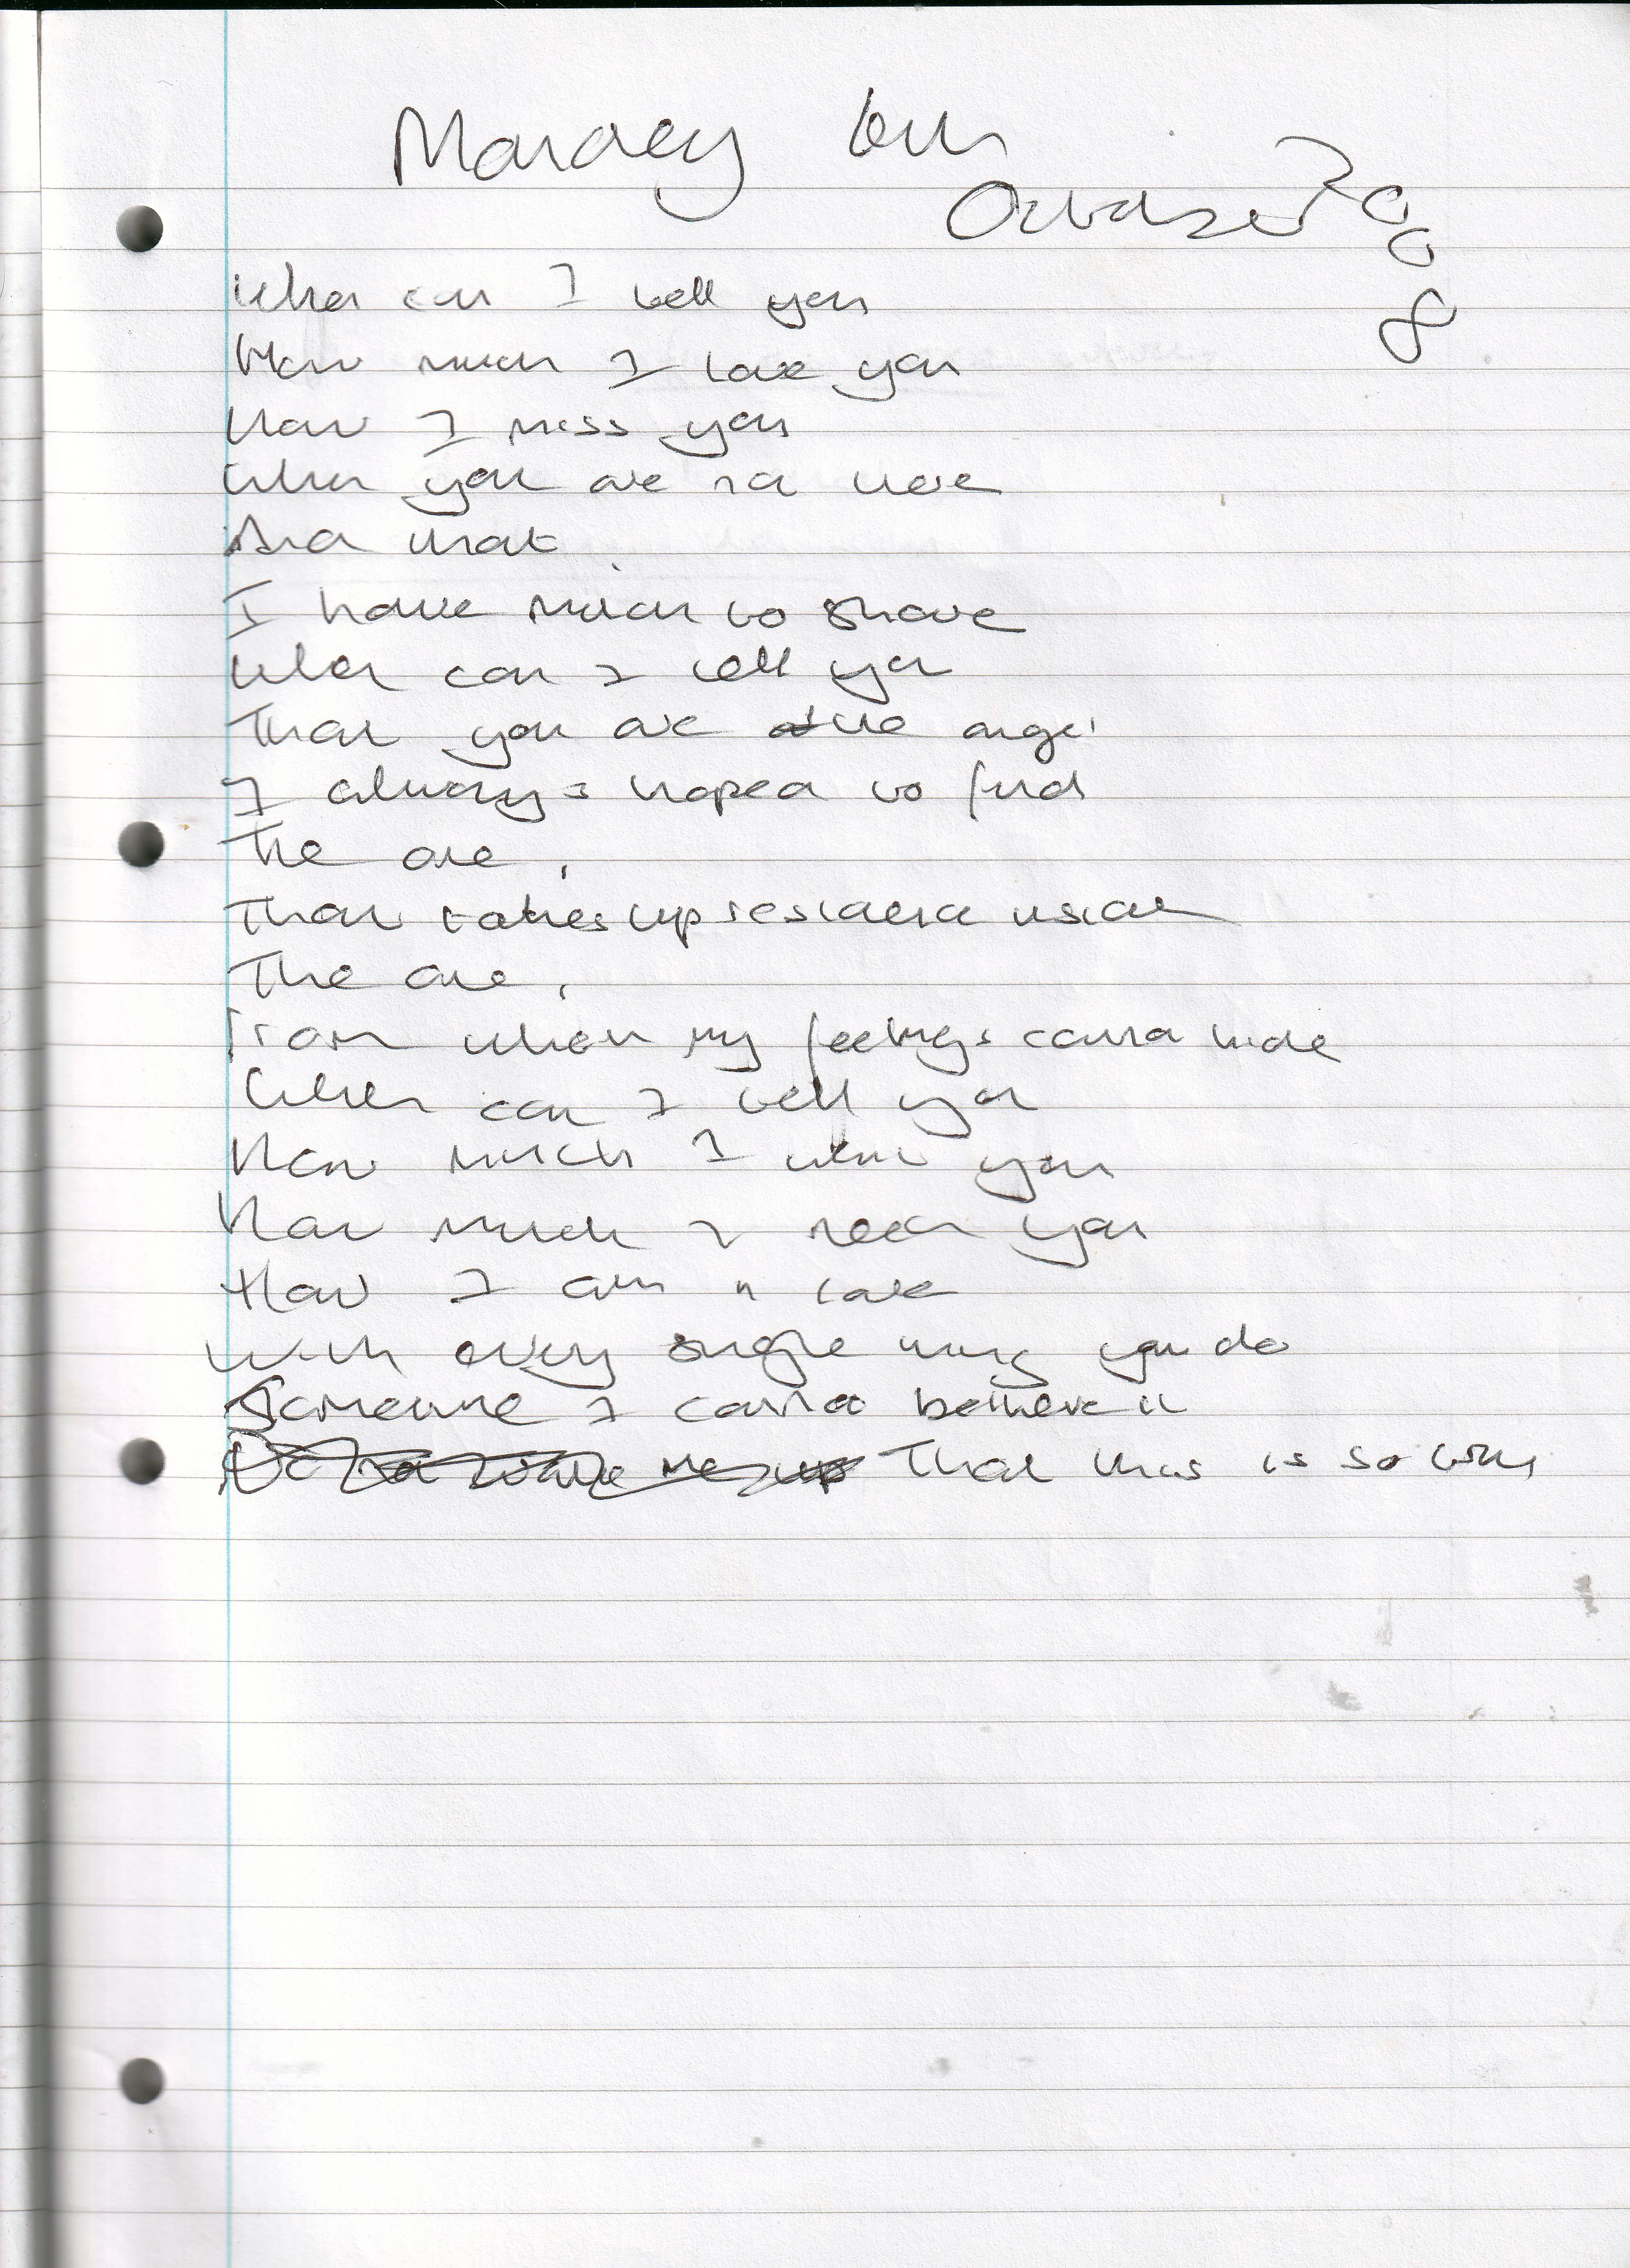 Monday 6th
October 2008
When can I tell you
How much I love you
How I miss you
When you are not here
And that
I have much to share
When can I tell you
That you are the angel
I always hoped to find
The one,
That takes up residence inside
The one,
From whom my feelings cannot hide
When can I tell you
How much I want you
How much I need you
How I am in love
With every single thing you do
Sometime I cannot believe it
That this is so